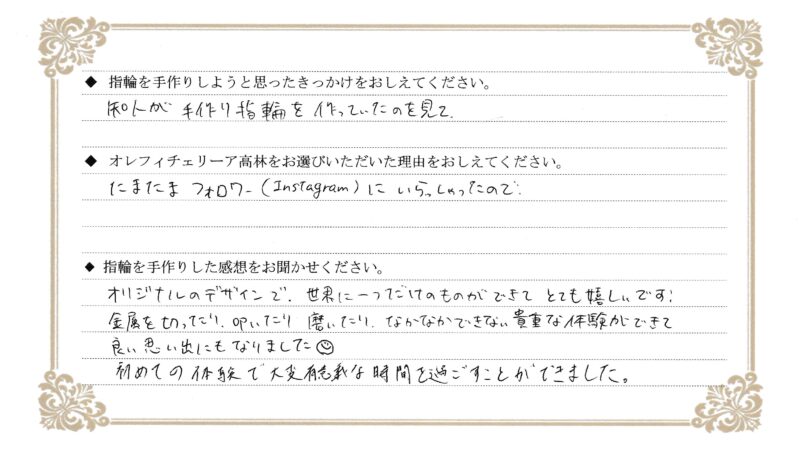 ◆ 指輪を手作りしようと思ったきっかけをおしえてください。
知人が 手作り指輪を 作っていたのを見て.
◆ オレフィチェリーア高林をお選びいただいた理由をおしえてください。
たまたま フォロワー(Instagram)に いらっしゃったので.
◆ 指輪を手作りした感想をお聞かせください。
オリジナルのデザインで、世界に一つだけのものができて とても嬉しいです!
金属を切ったり、叩いたり 磨いたり、なかなかできない貴重な体験ができて
良い思い出にもなりました☺
初めての体験で大変有意義な時間を過ごすことができました。